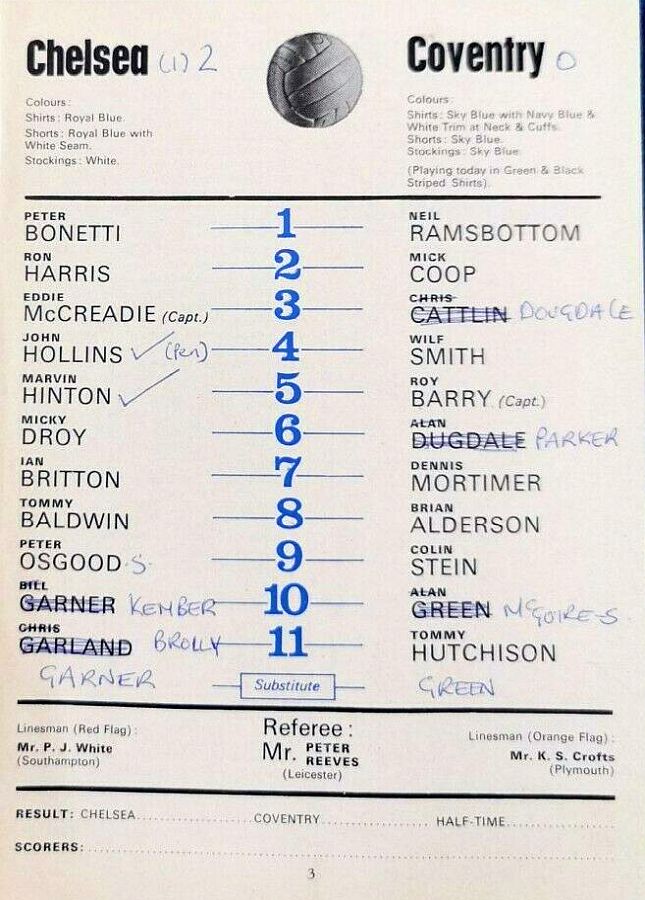 Chelsea (1) 2
Coventry 0
Colours:
Shirts: Royal Blue.
Shorts: Royal Blue with
White Seam.
Stockings: White.
Colours:
Shirts: Sky Blue with Navy Blue &
White Trim at Neck & Cuffs.
Shorts: Sky Blue.
Stockings: Sky Blue.
(Playing today in Green & Black
Striped Shirts).
PETER NEIL
BONETTI 1 RAMSBOTTOM
RON MICK
HARRIS 2 COOP
EDDIE CHRIS
McCREADIE (Capt.) 3 CATTLIN DOUGDALE
JOHN WILF
HOLLINS ✓ (Pen) 4 SMITH
MARVIN ROY
HINTON ✓ 5 BARRY (Capt.)
MICKY ALAN
DROY 6 DUGDALE PARKER
IAN DENNIS
BRITTON 7 MORTIMER
TOMMY BRIAN
BALDWIN 8 ALDERSON
PETER COLIN
OSGOOD S. 9 STEIN
BILL ALAN
GARNER KEMBER 10 GREEN McGOIRE-S
CHRIS TOMMY
GARLAND BROLLY 11 HUTCHISON
GARNER Substitute GREEN
Linesman (Red Flag):
Mr. P. J. White
(Southampton)
Referee:
Mr. PETER REEVES
(Leicester)
Linesman (Orange Flag):
Mr. K. S. Crofts
(Plymouth)
RESULT: CHELSEA.................... COVENTRY.................... HALF-TIME....................
SCORERS:....................
3